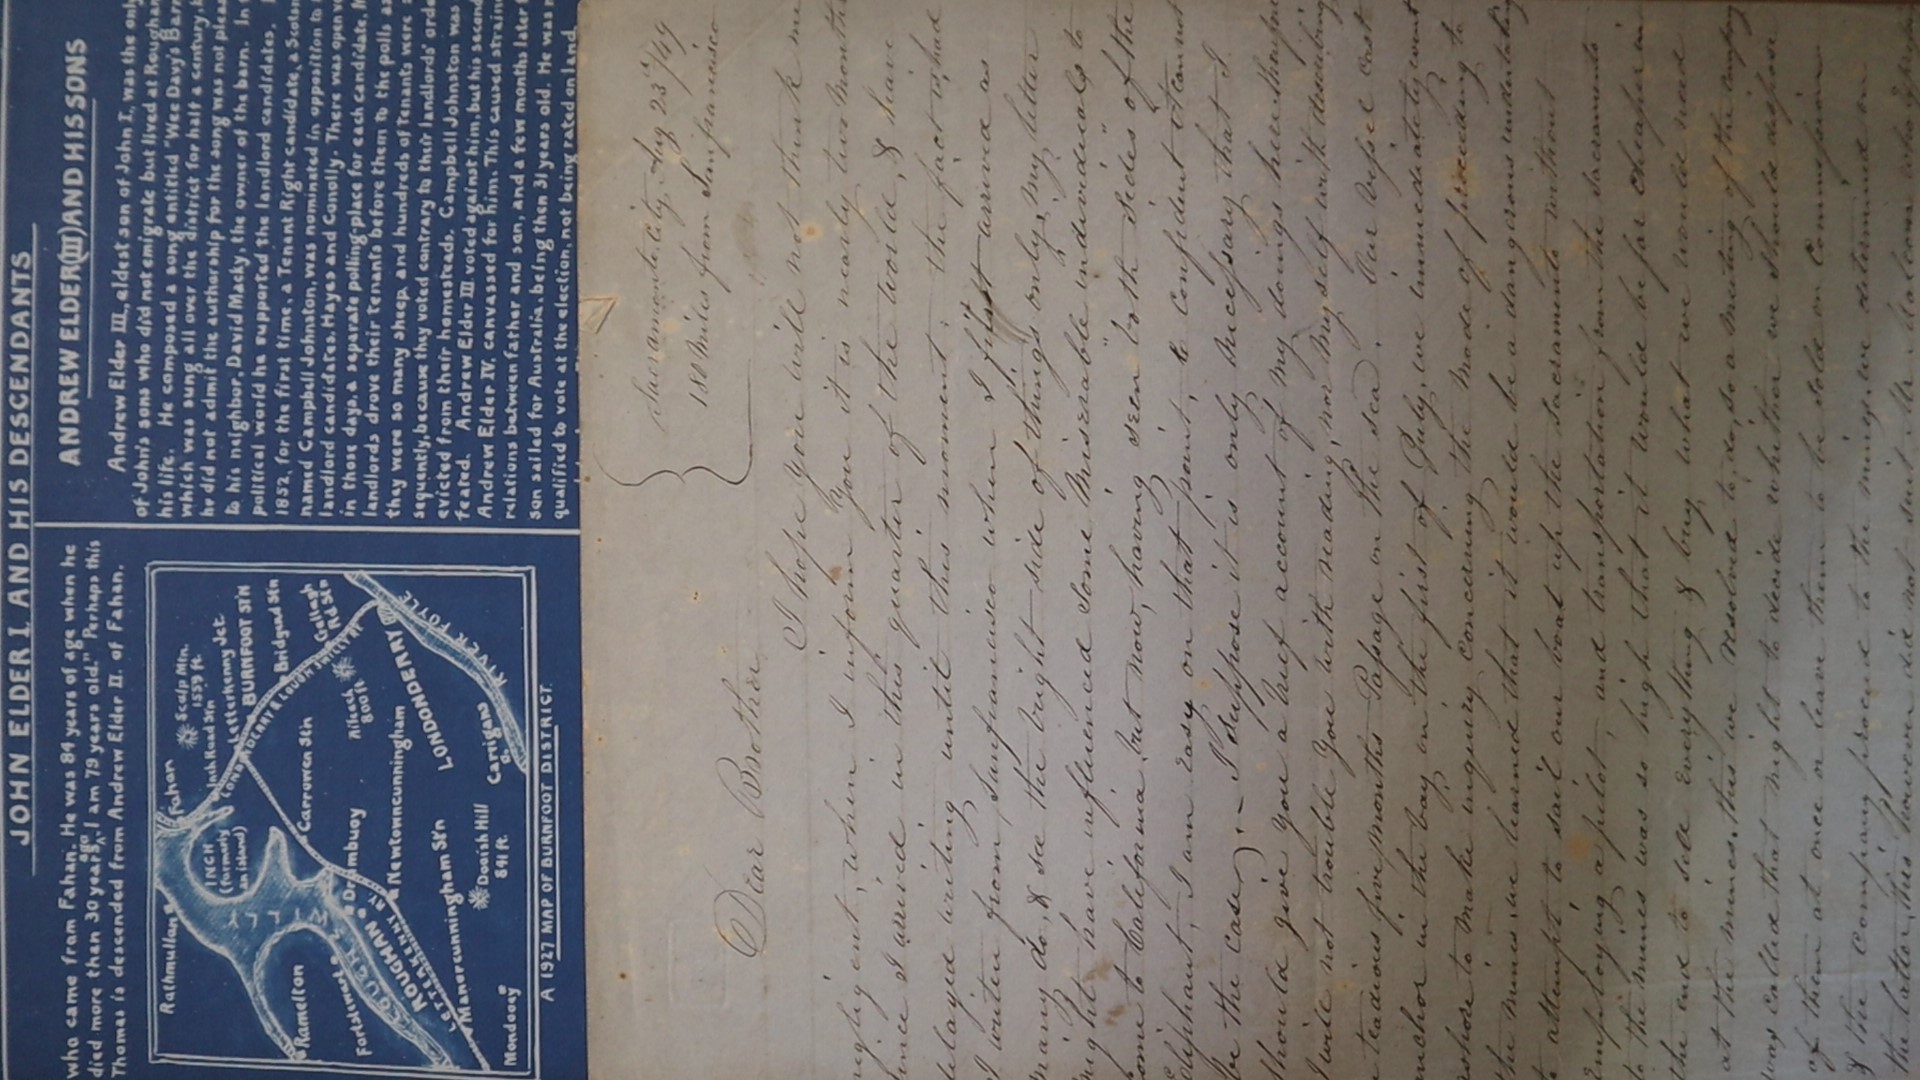 JOHN ELDER I. AND HIS DESCENDANTS
who came from Fahan. He was 84 years of age when he
died more than 30 years ago. I am 79 years old." Perhaps this
Thomas is descended from Andrew Elder II. of Fahan.
Rathmullan
Fahan
Scalp Mtn.
1559 ft.
Inch Road Stn
Letterkenny Jct
BURNFOOT STN
Bridgend Stn
Gallagh
Rd Stn
INCH
(formerly
an island)
LONDONDERRY & LOUGH SWILLY RY
Carrowen Stn
Aileach
800 ft
LONDONDERRY
RIVER FOYLE
Ramelton
Fortstewart
LOUGH SWILLY
ROUGHAN
Drimbuoy
Newtowncunningham
Carrigans
LETTERKENNY RY
Manorcunningham Stn
Dooish Hill
841 ft.
Mondooey
A 1927 MAP OF BURNFOOT DISTRICT.
ANDREW ELDER (III) AND HIS SONS
Andrew Elder III, eldest son of John I, was the only
of John's sons who did not emigrate but lived at Roughan
his life. He composed a song entitled "Wee Davy's Barn
which was sung all over the district for half a century, b
he did not admit the authorship for the song was not pleas
to his neighbor, David Macky, the owner of the barn. In
political world he supported the landlord candidates.
1852, for the first time, a Tenant Right candidate, a Scots
named Campbell Johnston, was nominated in opposition to
landlord candidates, Hayes and Conolly. There was open v
in those days, a separate polling place for each candidate.
landlords drove their tenants before them to the polls as
they were so many sheep, and hundreds of tenants were
sequently, because they voted contrary to their landlords' orde
evicted from their homesteads. Campbell Johnston was
feated. Andrew Elder III voted against him, but his second
Andrew Elder IV. canvassed for him. This caused strain
relations between father and son, and a few months later
son sailed for Australia, being then 31 years old. He was n
qualified to vote at the election, not being rated on land.
Sacramento City, Aug 23rd/49
180 Miles from Sanfrancisco
Dear Brother
I hope you will not think me
negligent, when I inform you it is nearly two months
since I arrived in this quarter of the world, & have
delayed writing until this moment, the fact is, had
I written from Sanfrancisco when I first arrived as
many do, & see the bright side of things only, my letter
might have influenced some miserable individuals to
come to California, but now, having "seen both sides of the
Elephant", I am easy on that point, & confident it cannot
be the case; – I suppose it is only necessary that I
should give you a brief account of my doings heretofore
I will not trouble you with reading, nor myself with detailing
a tedious five months Passage on the sea. Our vessel cast
anchor in the bay on the first of July, we immediately went
ashore to make inquiry concerning the mode of proceeding to
the mines, we learned that it would be a dangerous undertaking
to attempt to sail our boat up the Sacramento without
Employing a pilot, and transportation from the Sacramento
to the mines was so high that it would be far cheaper in
the end to sell everything & buy what we would need
at the mines, this we resolved to do, so a meeting of the company
was called that night to decide whether we should dispose
of them at once or leave them to be sold on Commission
& the Company proceed to the mines, we determined on
the latter, this however did not suit Mr.